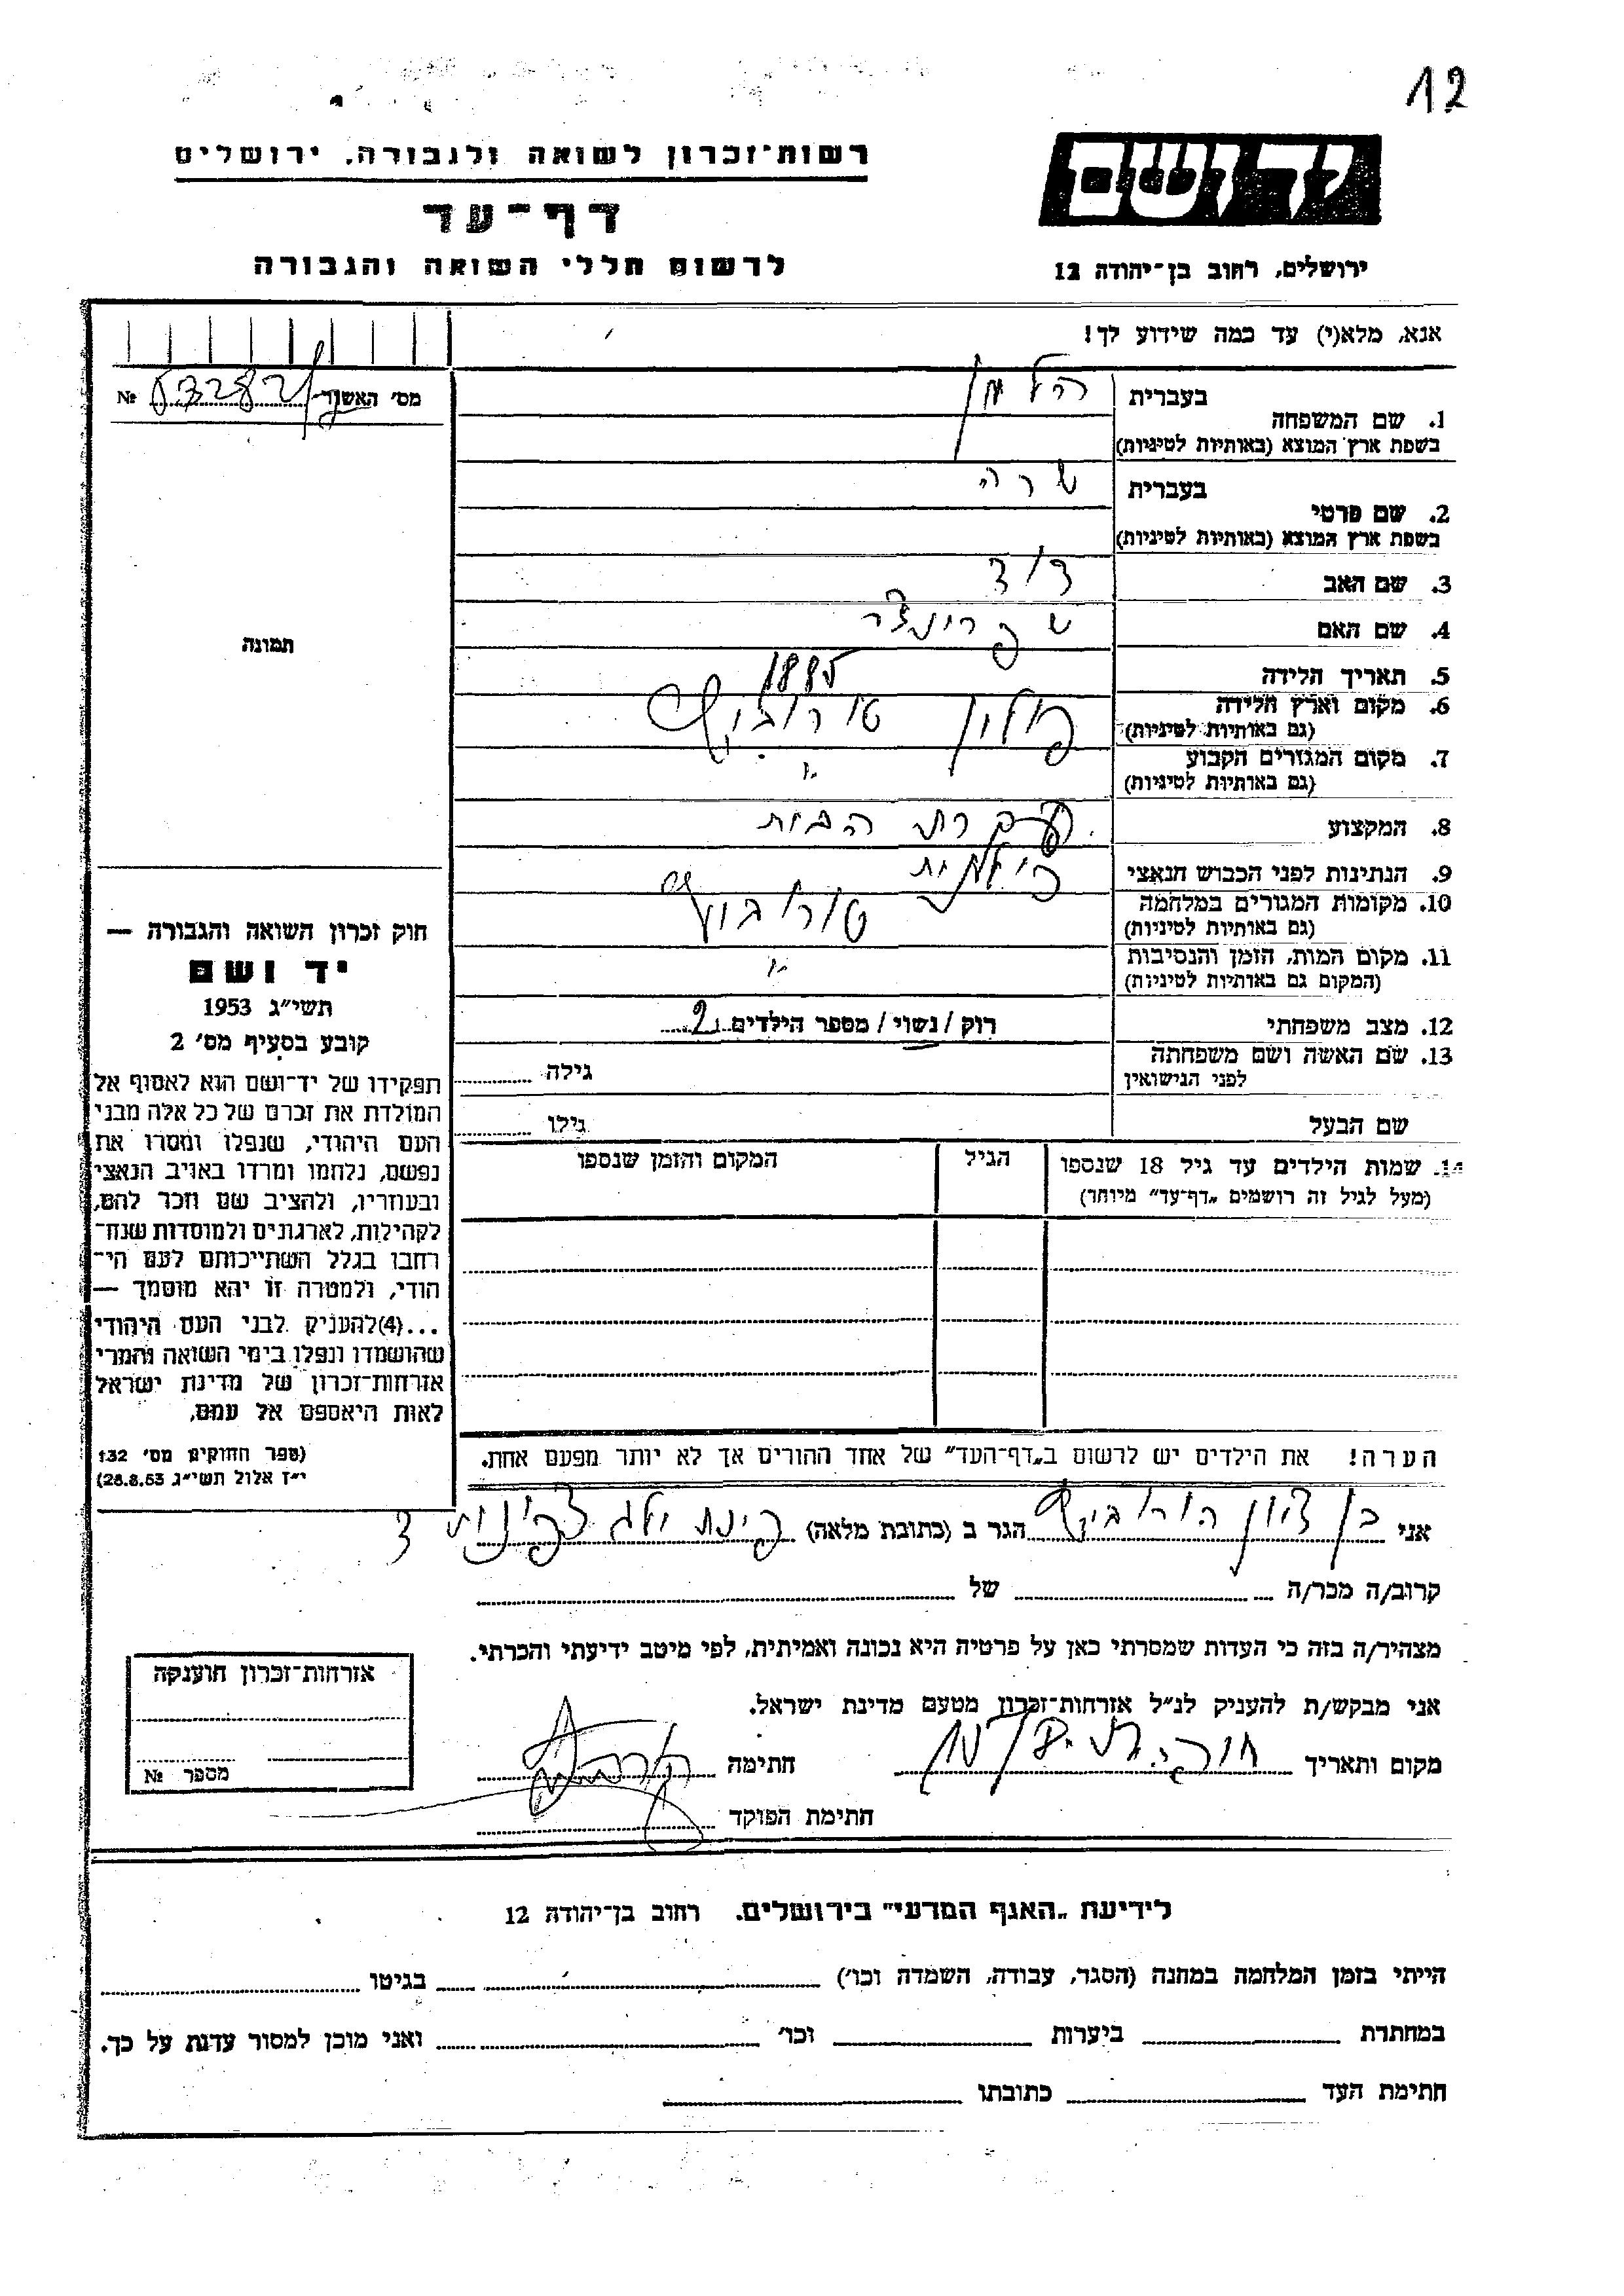 12
יד ושם
רשות־זכרון לשואה ולגבורה, ירושלים
דף־עד
לרשום חללי השואה והגבורה
ירושלים, רחוב בן־יהודה 12
אנא, מלא(י) עד כמה שידוע לך!
מס׳ האשור №
1. שם המשפחה
בעברית
בשפת ארץ המוצא (באותיות לטיניות)
2. שם פרטי
בעברית שרה
בשפת ארץ המוצא (באותיות לטיניות)
3. שם האב דוד
4. שם האם שפרינצר
5. תאריך הלידה 1885
6. מקום וארץ הלידה פולין
(גם באותיות לטיניות)
7. מקום המגורים הקבוע
(גם באותיות לטיניות)
8. המקצוע עקרת הבית
9. הנתינות לפני הכבוש הנאצי פולנית
10. מקומות המגורים במלחמה
(גם באותיות לטיניות)
11. מקום המות, הזמן והנסיבות
(המקום גם באותיות לטיניות)
12. מצב משפחתי רוק / נשוי / מספר הילדים 2
13. שם האשה ושם משפחתה
לפני הנישואין
גילה
שם הבעל גילו
14. שמות הילדים עד גיל 18 שנספו הגיל המקום והזמן שנספו
(מעל לגיל זה רושמים „דף־עד” מיוחד)
הערה! את הילדים יש לרשום ב„דף־העד” של אחד ההורים אך לא יותר מפעם אחת.
תמונה
חוק זכרון השואה והגבורה —
יד ושם
תשי״ג 1953
קובע בסעיף מס׳ 2
תפקידו של יד־ושם הוא לאסוף אל
המולדת את זכרם של כל אלה מבני
העם היהודי, שנפלו ומסרו את
נפשם, נלחמו ומרדו באויב הנאצי
ובעוזריו, ולהציב שם וזכר להם,
לקהילות, לארגונים ולמוסדות שנח־
רבו בגלל השתייכותם לעם הי־
הודי, ולמטרה זו יהא מוסמך —
...(4)להעניק לבני העם היהודי
שהושמדו ונפלו בימי השואה והמרי
אזרחות־זכרון של מדינת ישראל
לאות היאספם אל עמם.
(ספר החוקים מס׳ 132
י״ז אלול תשי״ג 28.8.53)
אני בן ציון הורוביץ הגר ב (כתובת מלאה)
קרוב/ה מכר/ה של
מצהיר/ה בזה כי העדות שמסרתי כאן על פרטיה היא נכונה ואמיתית, לפי מיטב ידיעתי והכרתי.
אני מבקש/ת להעניק לנ״ל אזרחות־זכרון מטעם מדינת ישראל.
מקום ותאריך חתימה
חתימת הפוקד
אזרחות־זכרון הוענקה
מספר №
לידיעת „האגף המדעי” בירושלים. רחוב בן־יהודה 12
הייתי בזמן המלחמה במחנה (הסגר, עבודה, השמדה וכו׳) בגיטו
במחתרת ביערות וכו׳ ואני מוכן למסור עדות על כך.
חתימת העד כתובתו